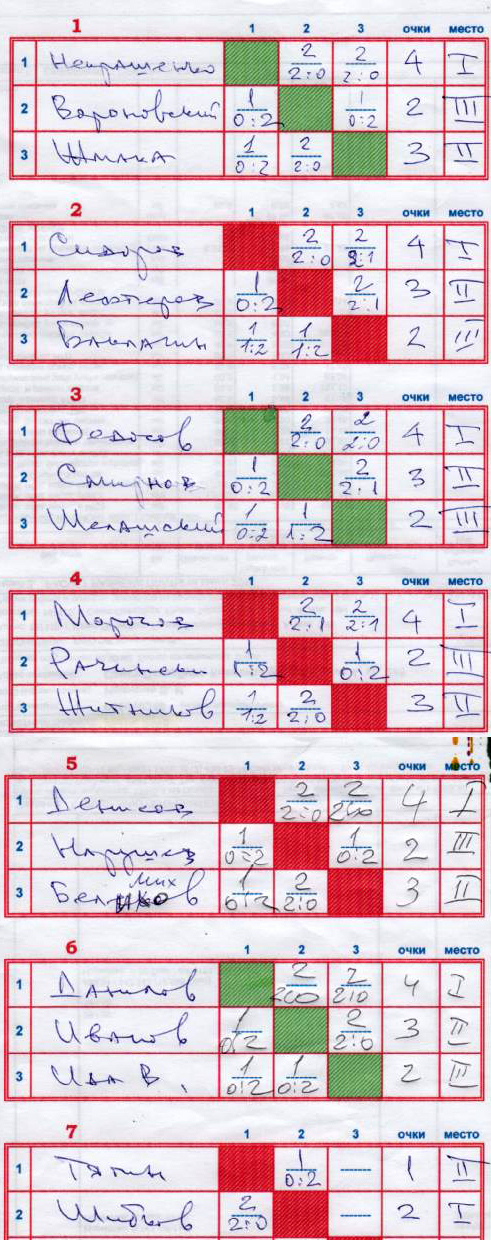 1
1 2 3 очки место
1 Некрашенко 2 2:0 2 2:0 4 I
2 Вороновский 1 0:2 1 0:2 2 III
3 Шмака 1 0:2 2 2:0 3 II
2
1 2 3 очки место
1 Сидоров 2 2:0 2 2:1 4 I
2 1 0:2 2 2:1 3 II
3 Баклагин 1 1:2 1 1:2 2 III
3
1 2 3 очки место
1 Федосов 2 2:0 2 2:0 4 I
2 Смирнов 1 0:2 2 2:1 3 II
3 1 0:2 1 1:2 2 III
4
1 2 3 очки место
1 Морозов 2 2:1 2 2:1 4 I
2 1 1:2 1 0:2 2 III
3 Житников 1 1:2 2 2:0 3 II
5
1 2 3 очки место
1 Денисов 2 2:0 2 2:0 4 I
2 1 0:2 1 0:2 2 III
3 Мих 1 0:2 2 2:0 3 II
6
1 2 3 очки место
1 Данилов 2 2:0 2 2:0 4 I
2 Иванов 1 0:2 2 2:0 3 II
3 Ива В. 1 0:2 1 0:2 2 III
7
1 2 3 очки место
1 Тяпин 1 0:2 1 II
2 2 2:0 2 I